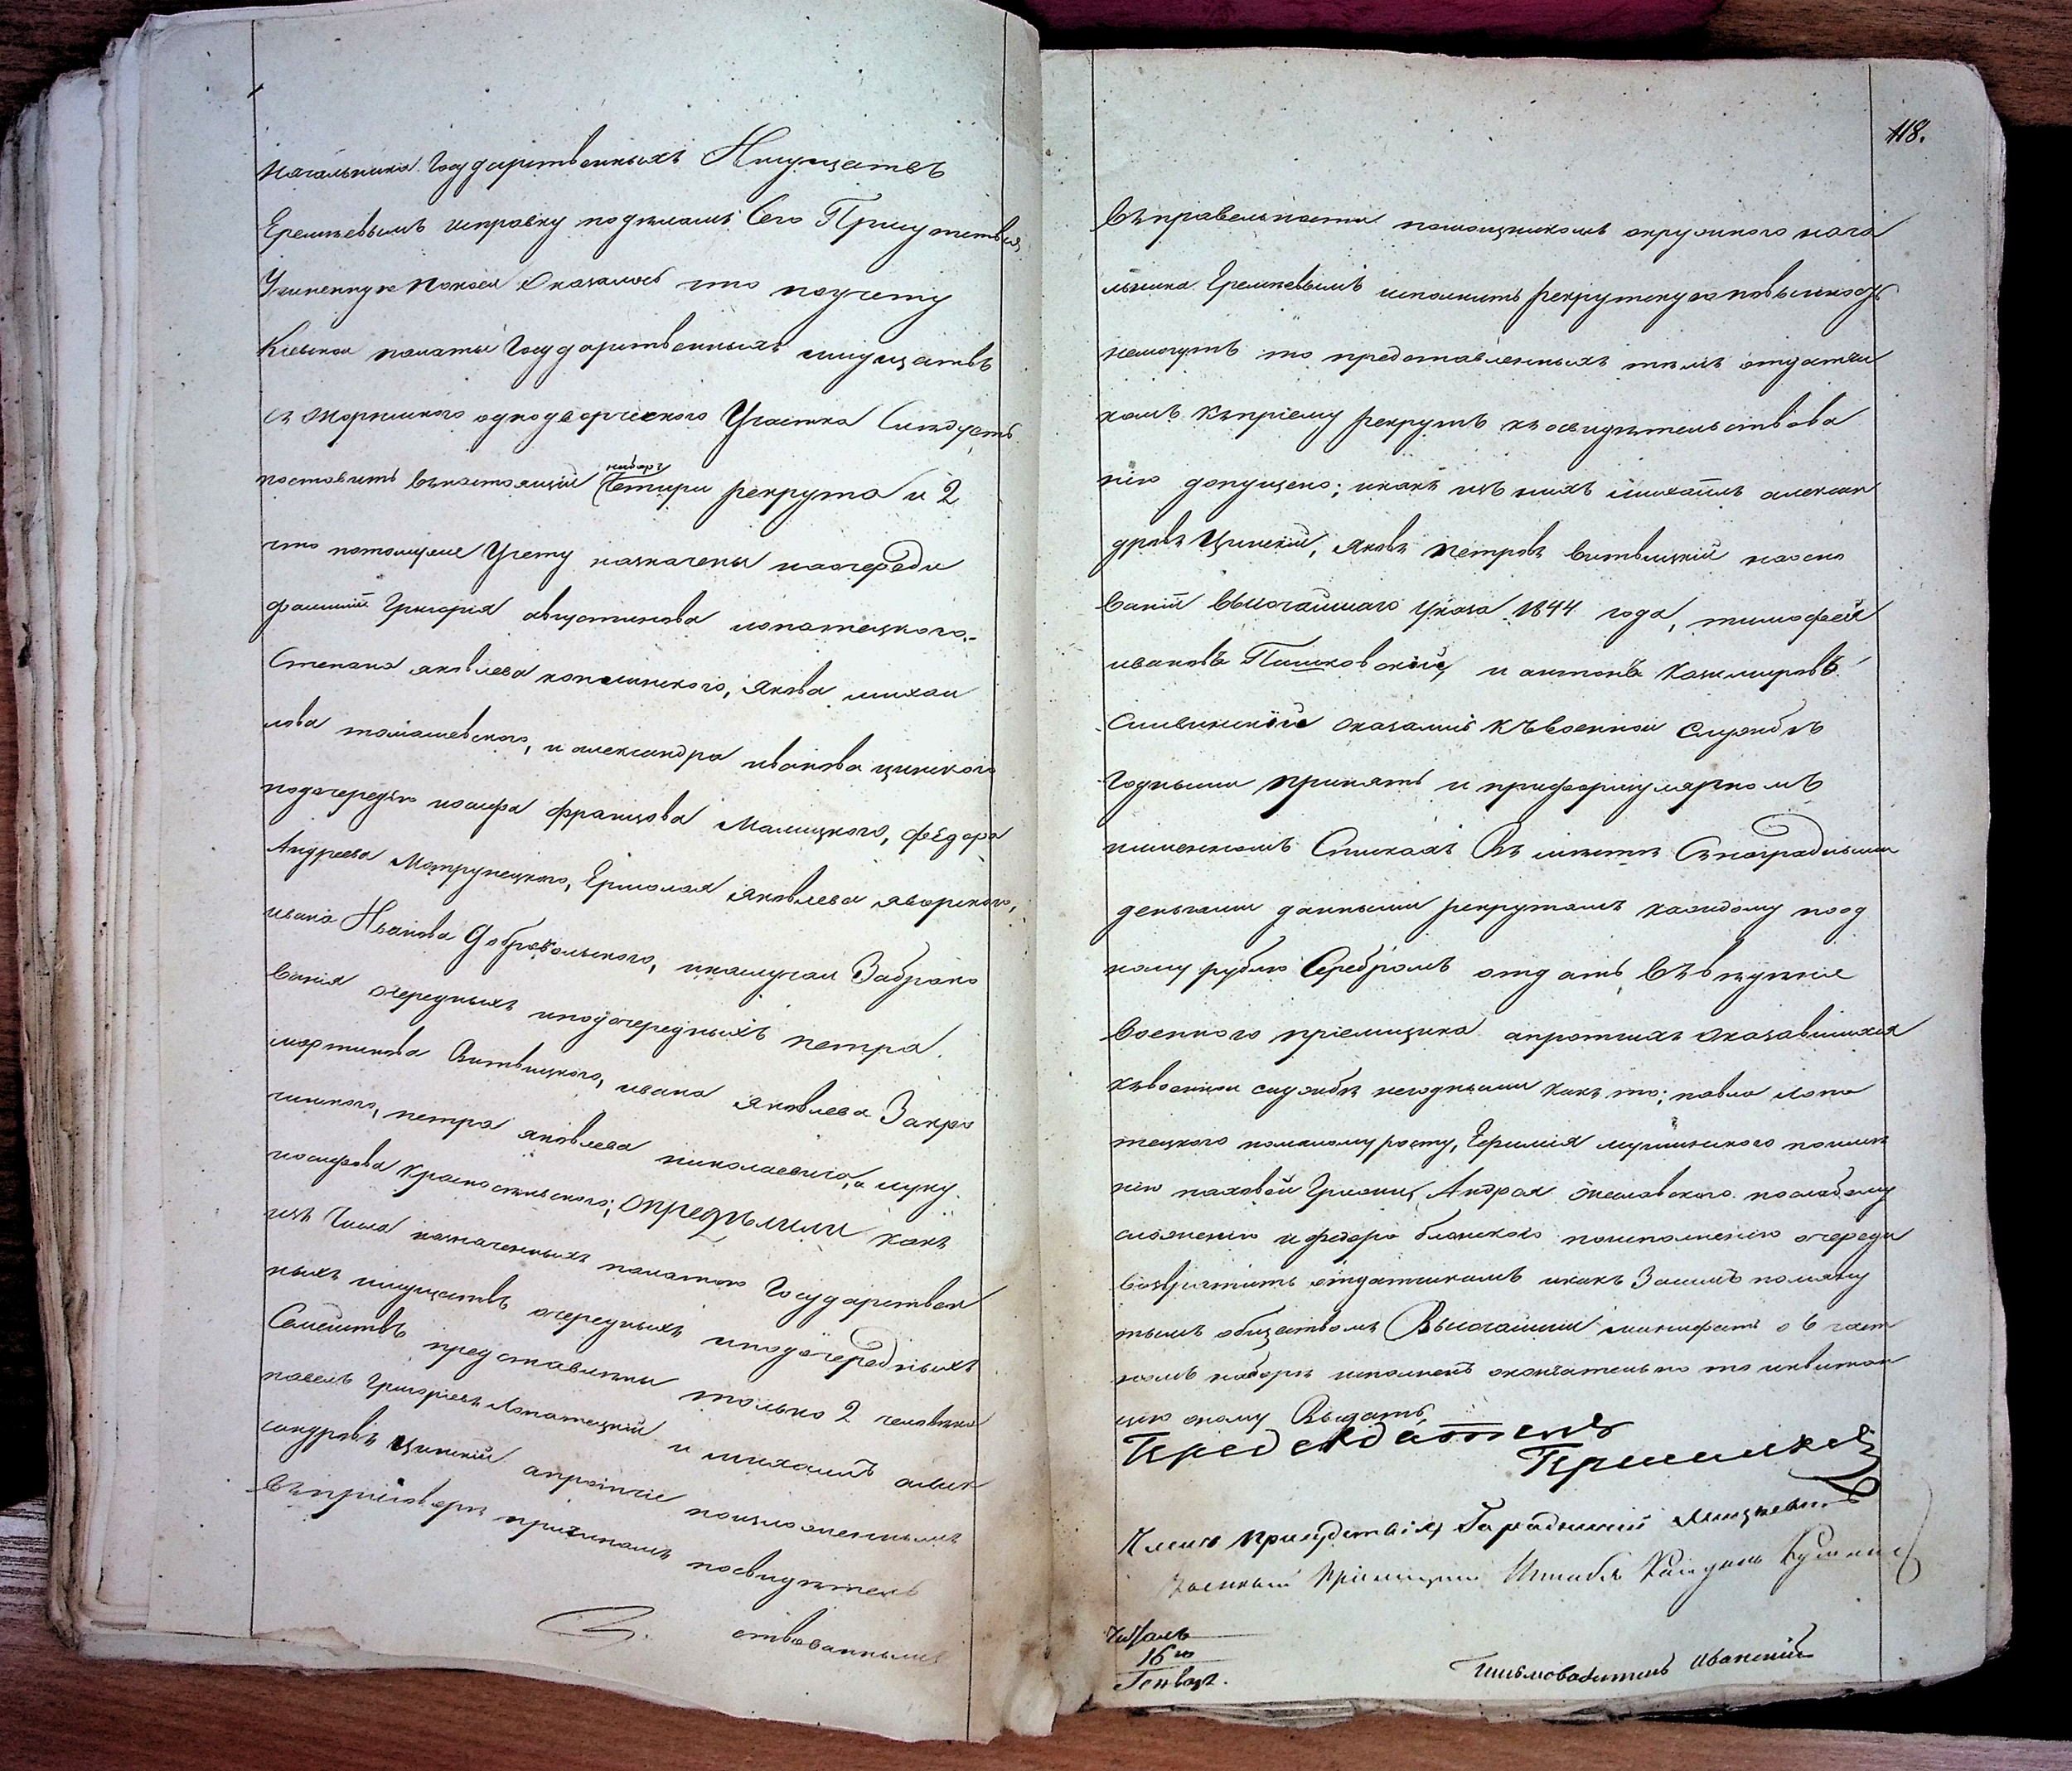 начальника Государственныхъ Имуществъ
Еремѣевымъ исправку подѣламъ Сего Присутствія
Учиненную покоей Оказалось что поучету
Кіевской палаты Государственныхъ имуществъ
съ однодворческого Участка Слѣдуетъ
поставить внастоящій наборъ Четыри рекрута и 2
что потомуже Учету назначены наочереди
фамиліи Григорія августинова лопатецкого,
Степана яковлева копчинского, Якова михаи
лова томашевского, и александра иванова цинского
подочередью иосифа францова Малицкого, фёдора
Андреева Мотрунецкого, Ермолая яковлева яворского,
ивана Иванова Добровольского, инаслучаи Забрако
ванія очередныхъ иподочередныхъ петра
мартинова Витвицкого, ивана яковлева Закрж
чинского, петра яковлева николаевича, и луку
иосифова Красносельского; Опредѣлили какъ
изъ Числа назначенныхъ палатою Государствен
ныхъ имуществъ очередныхъ иподочередныхъ
Семействъ представлены только 2 человѣка
павелъ Григорьевъ Лопатецкій и михаилъ алек
сандровъ Цинскій апротчіе поизложеннымъ
въприговорѣ причинамъ посвидѣтель
ствованнымъ
118.
въправельности помощникомъ окружного нача
льника Еремѣевымъ исполнить рекрутскую повинность
немогутъ то представленныхъ тѣмъ отдатчи
комъ къпріему рекрутъ къосвидѣтельствова
нію допущено; икакъ изъ нихъ михаилъ алексан
дровъ Цинскій, яковъ петровъ витвицкій наосно
ваніи высочайшаго указа 1844 года, тимофей
ивановъ Пашковскій, и антонъ казимировъ
Сливинскій оказались къвоенной службѣ
годными принять и приформулярномъ
именномъ Спискахъ Въ мѣстѣ Снаградными
деньгами данными рекрутамъ каждому поод
ному рублю Серебромъ отдать въвѣдѣніе
военного пріемщика апротчихъ оказавшихся
къвоенной службѣ негодными какъ то; павла лопа
тецкого помалому росту, поимѣ
нію паховой Грыжи, Андрея послабому
сложенію и федора поисполненію очереди
возвратить отдатчикамъ икакъ Засимъ помяну
тымъ обществомъ Высочайшій манифестъ о 6 част
номъ наборѣ исполненъ окончательно то иквитан
цію оному Выдать
Председатель
Членъ присудствія Городничій
военный пріемщикъ Штабсъ Капитанъ
Читалъ
16го
Генваря.
письмоводитель Иванскій